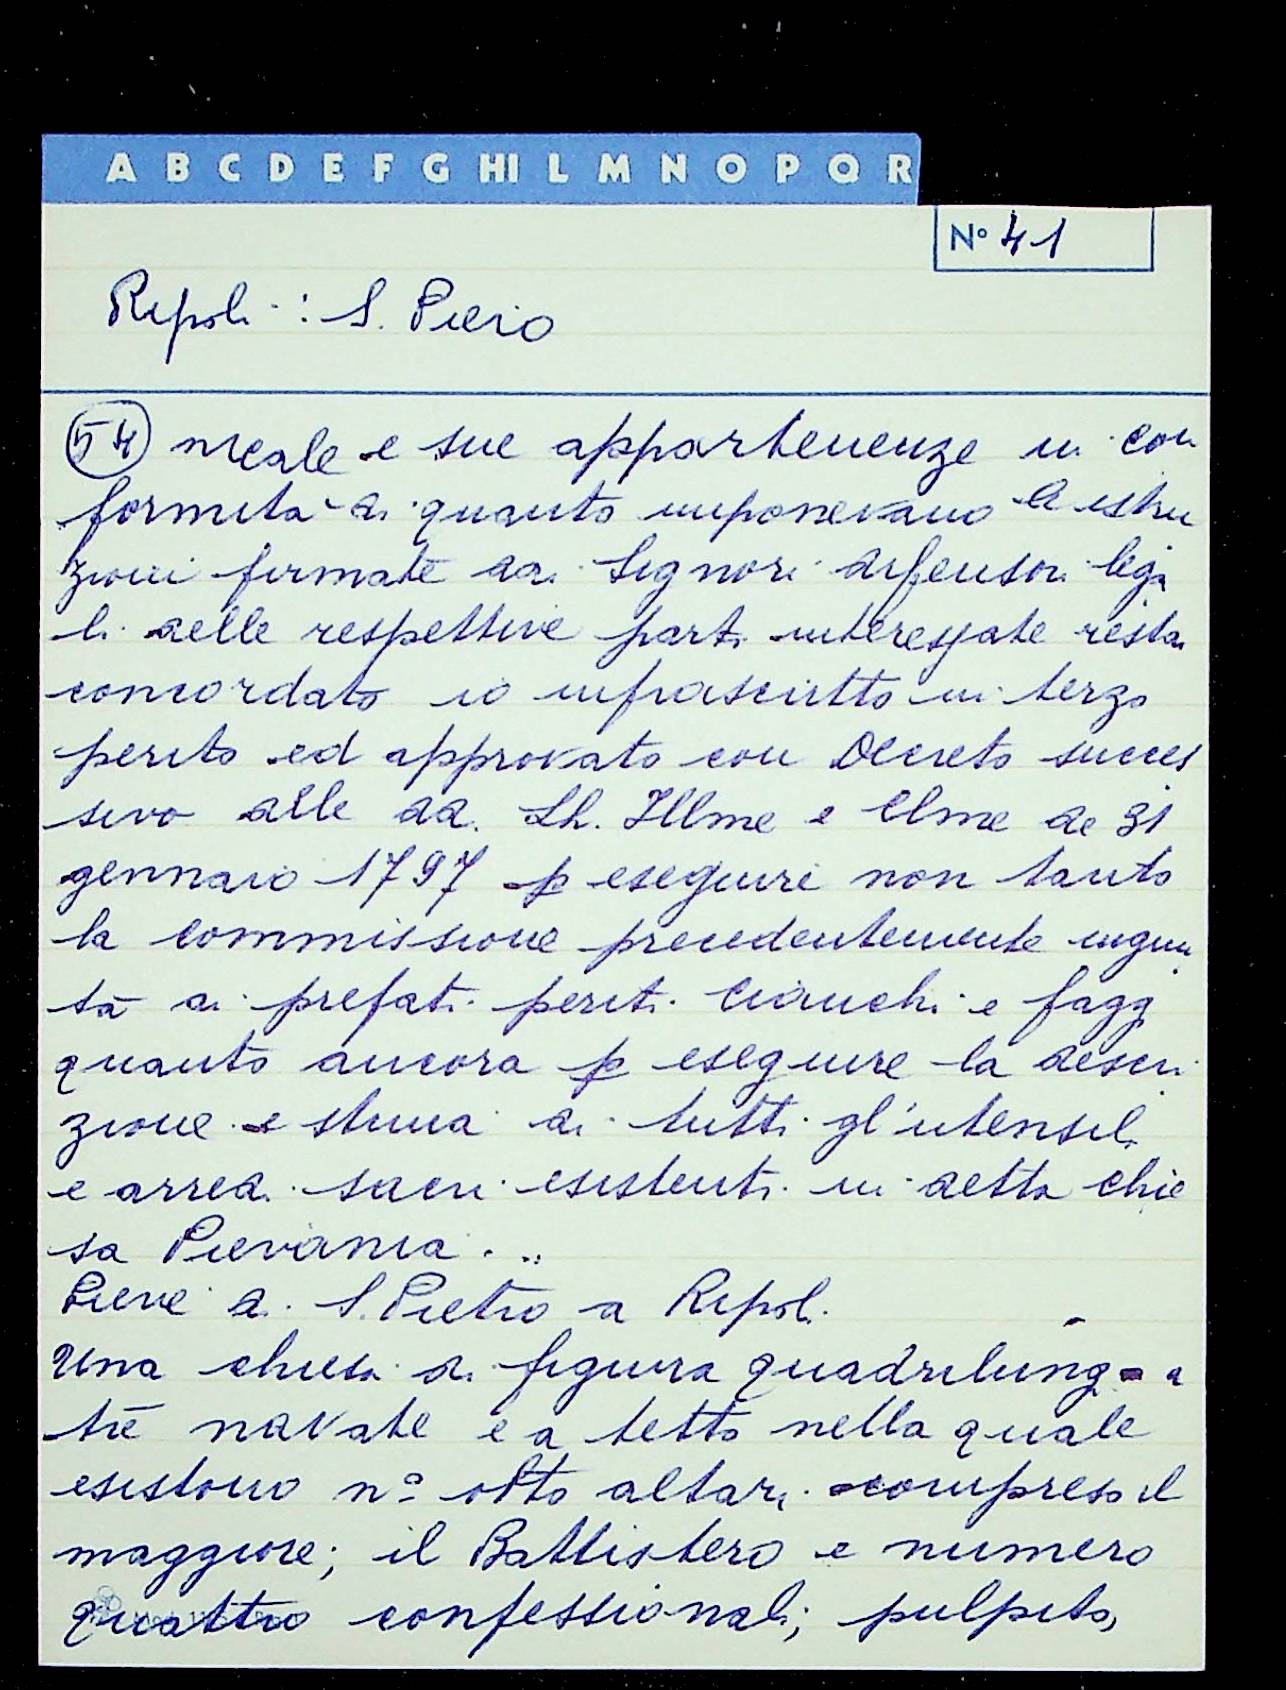 A B C D E F G HI L M N O P Q R
N° 41
Ripoli: S. Piero
54 nicale e sue appartenenze in con
formità di quanto imponevano le istru
zioni firmate dai Signori difensori lega
li delle respettive parti interessate resta
concordato io infrascritto in terzo
perito ed approvato con Decreto succes
sivo alle dd. LL. Illme e Clme de 31
gennaio 1797 p eseguire non tanto
la commissione precedentemente ingiun
ta ai prefati periti Cianchi e Faggi
quanto ancora p eseguire la descri
zione e stima di tutti gl'utensili
e arredi sacri esistenti in detta chie
sa Pievania...
Pieve di S. Pietro a Ripoli
Una chiesa di figura quadrilunga a
tre navate e a tetto nella quale
esistono n° otto altari compreso il
maggiore; il Battistero e numero
quattro confessionali; pulpito,